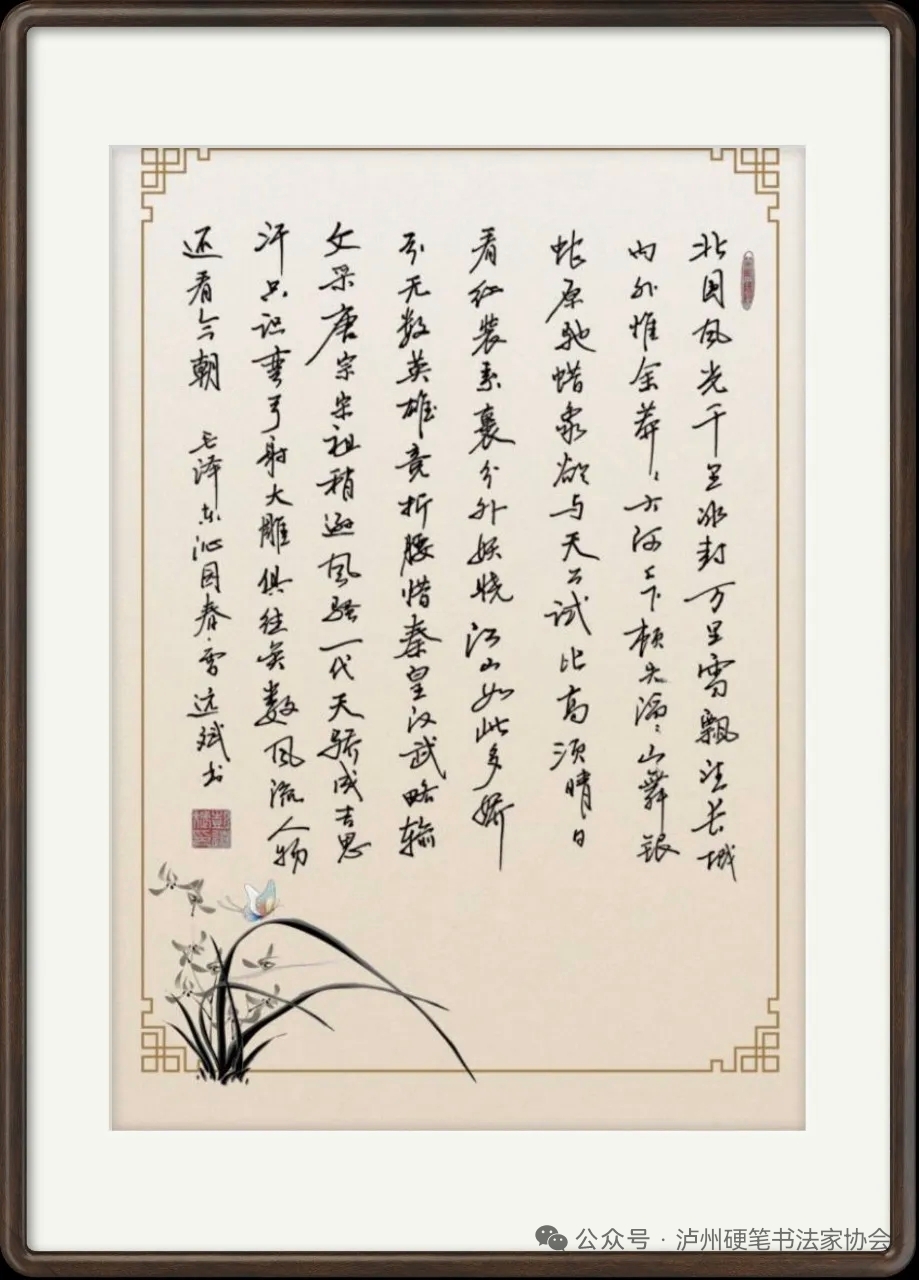 北国风光千里冰封万里雪飘望长城
内外惟余莽々大河上下顿失滔々山舞银
蛇原驰蜡象欲与天公试比高须晴日
看红装素裹分外妖娆江山如此多娇
引无数英雄竞折腰惜秦皇汉武略输
文采唐宗宋祖稍逊风骚一代天骄成吉思
汗只识弯弓射大雕俱往矣数风流人物
还看今朝 毛泽东沁园春·雪 远斌书
公众号·泸州硬笔书法家协会